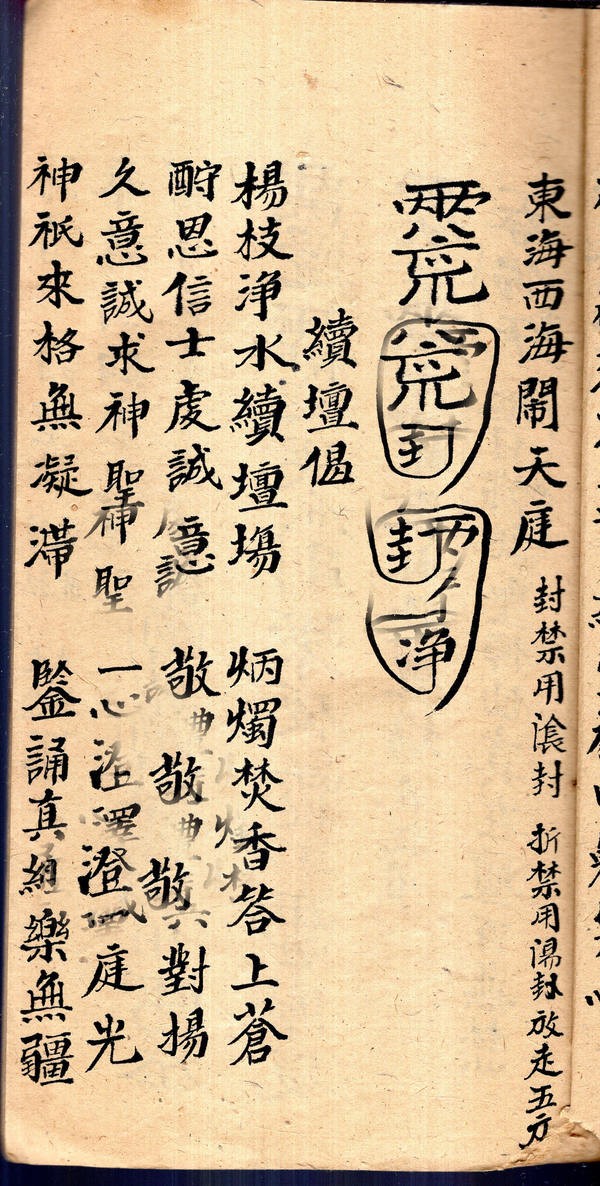 東海西海鬧天庭 封禁用滾封 折禁用湯封放走五方
封
封 净
續壇偈
楊枝淨水續壇塲 炳燭焚香答上蒼
酧恩信士虔誠意 敬敬敬對揚
久意誠求神聖神聖 一心澄澤澄一庭光
神祇來格無凝滯 鑒誦真經樂無疆